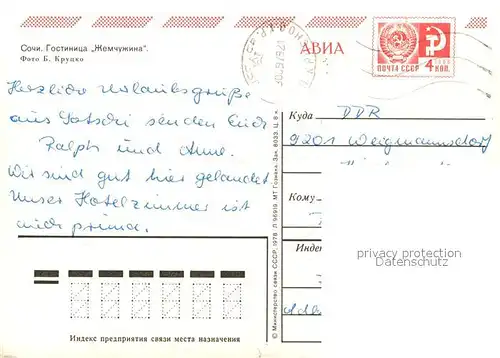 Сочи. Гостиница „Жемчужина".
Фото Б. Круцко
АВИА
ПОЧТА СССР
4 КОП.
Herzliche Urlaubsgrüße
aus Sotschi senden Euch
Ralph und Anne.
Wir sind gut hier gelandet
Unser Hotelzimmer ist
auch prima.
Куда DDR
9201 Weigmannsdorf
Кому
Индек
privacy protection
Datenschutz
© Министерство связи СССР, 1978. Л 96919. МТ Гознака. Зак. 8033. Ц. 8 к.
Индекс предприятия связи места назначения